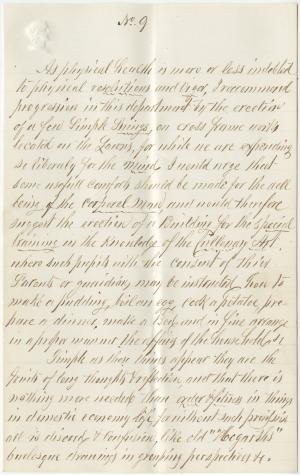 No. 9
As physical health is more or less indebted
to physical and I recommend
progression in this department by the erection
of a few Simple Swings, on cross frame work
located in the Lawns, for while we are expending
so liberally for the Mind, I would urge that
some usefull comforts should be made for the well
being of the corporeal Man and would therefore
suggest the erection of a Building for the special
training in the knowledge of the Cullenary Art
where such pupils with the consent of their
Parents or guardians may be instructed how to
make a pudding, boil an egg, cook a potatoe, pre-
pare a dinner, make a Bed, and in fine arrange
in a proper manner the affairs of the household &c
Simple as these things appear they are the
fruits of long thought & reflection, and that there is
nothing more needed than order & fitness in things
in domestic economy life, for without such provision
all is discord & confusion, like old "Hogarths"
burlesque drawings in grouping perspectives &c.